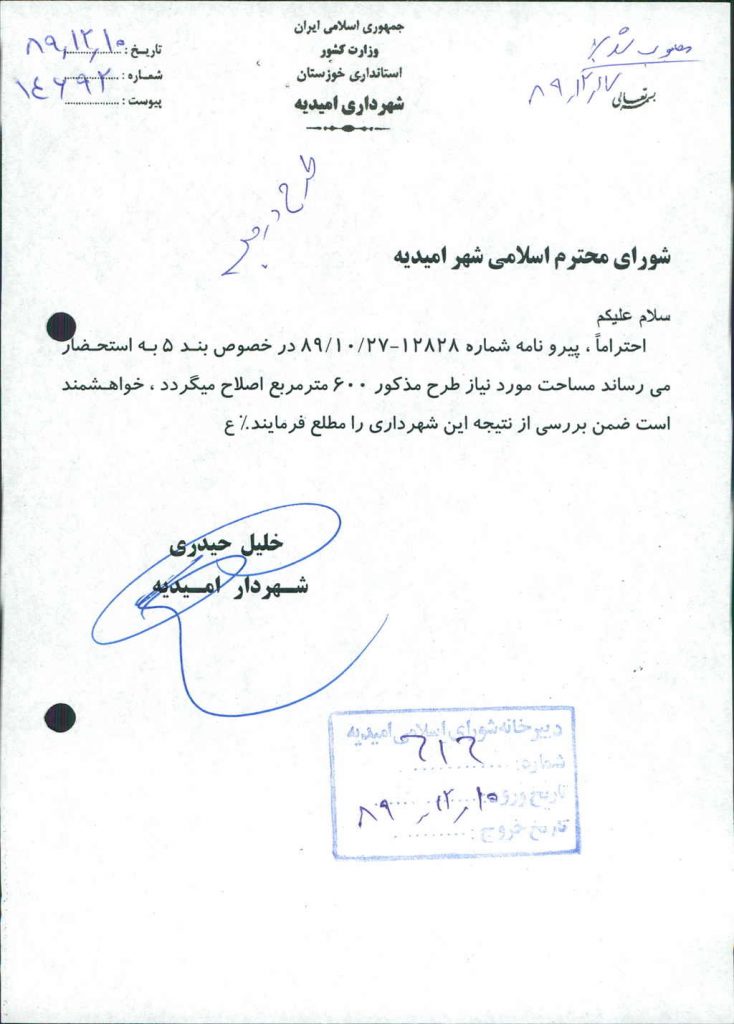 جمهوری اسلامی ایران
وزارت کشور
استانداری خوزستان
شهرداری امیدیه
تاریخ : ۸۹,۱۲,۱۰
شماره : ۱٤۶۹۲
پیوست :
مصوب شد
۸۹,۱۲,۱۷
بسمه تعالی
طرح در
شورای محترم اسلامی شهر امیدیه
سلام علیکم
احتراماً ، پیرو نامه شماره ۱۲۸۲۸-۸۹/۱۰/۲۷ در خصوص بند ۵ به استحضار
می رساند مساحت مورد نیاز طرح مذکور ۶۰۰ مترمربع اصلاح میگردد ، خواهشمند
است ضمن بررسی از نتیجه این شهرداری را مطلع فرمایند.٪ ع
خلیل حیدری
شهردار امیدیه
دبیرخانه شورای اسلامی امیدیه
شماره:
تاریخ ورود: ۸۹,۱۲,۱۰
تاریخ خروج: